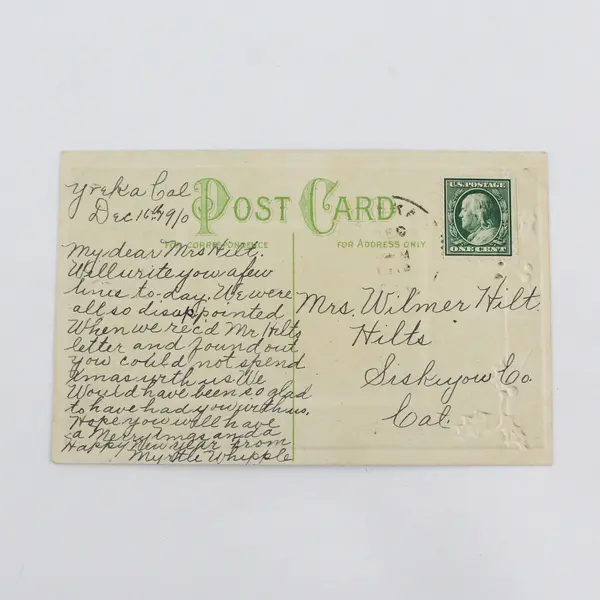 Yreka Cal
Dec 16th 1910
POST CARD
FOR CORRESPONDENCE
FOR ADDRESS ONLY
U.S. POSTAGE
ONE CENT
My dear Mrs Hilt.
Will write you a few
lines to-day. We were
all so disappointed
When we rec'd Mr Hilts
letter and found out
you could not spend
Xmas with us. We
Would have been so glad
to have had you with us.
Hope you will have
a Merry Xmas and a
Happy New Year from
Myrtle Whipple
Mrs. Wilmer Hilt.
Hilts
Siskiyou Co.
Cal.